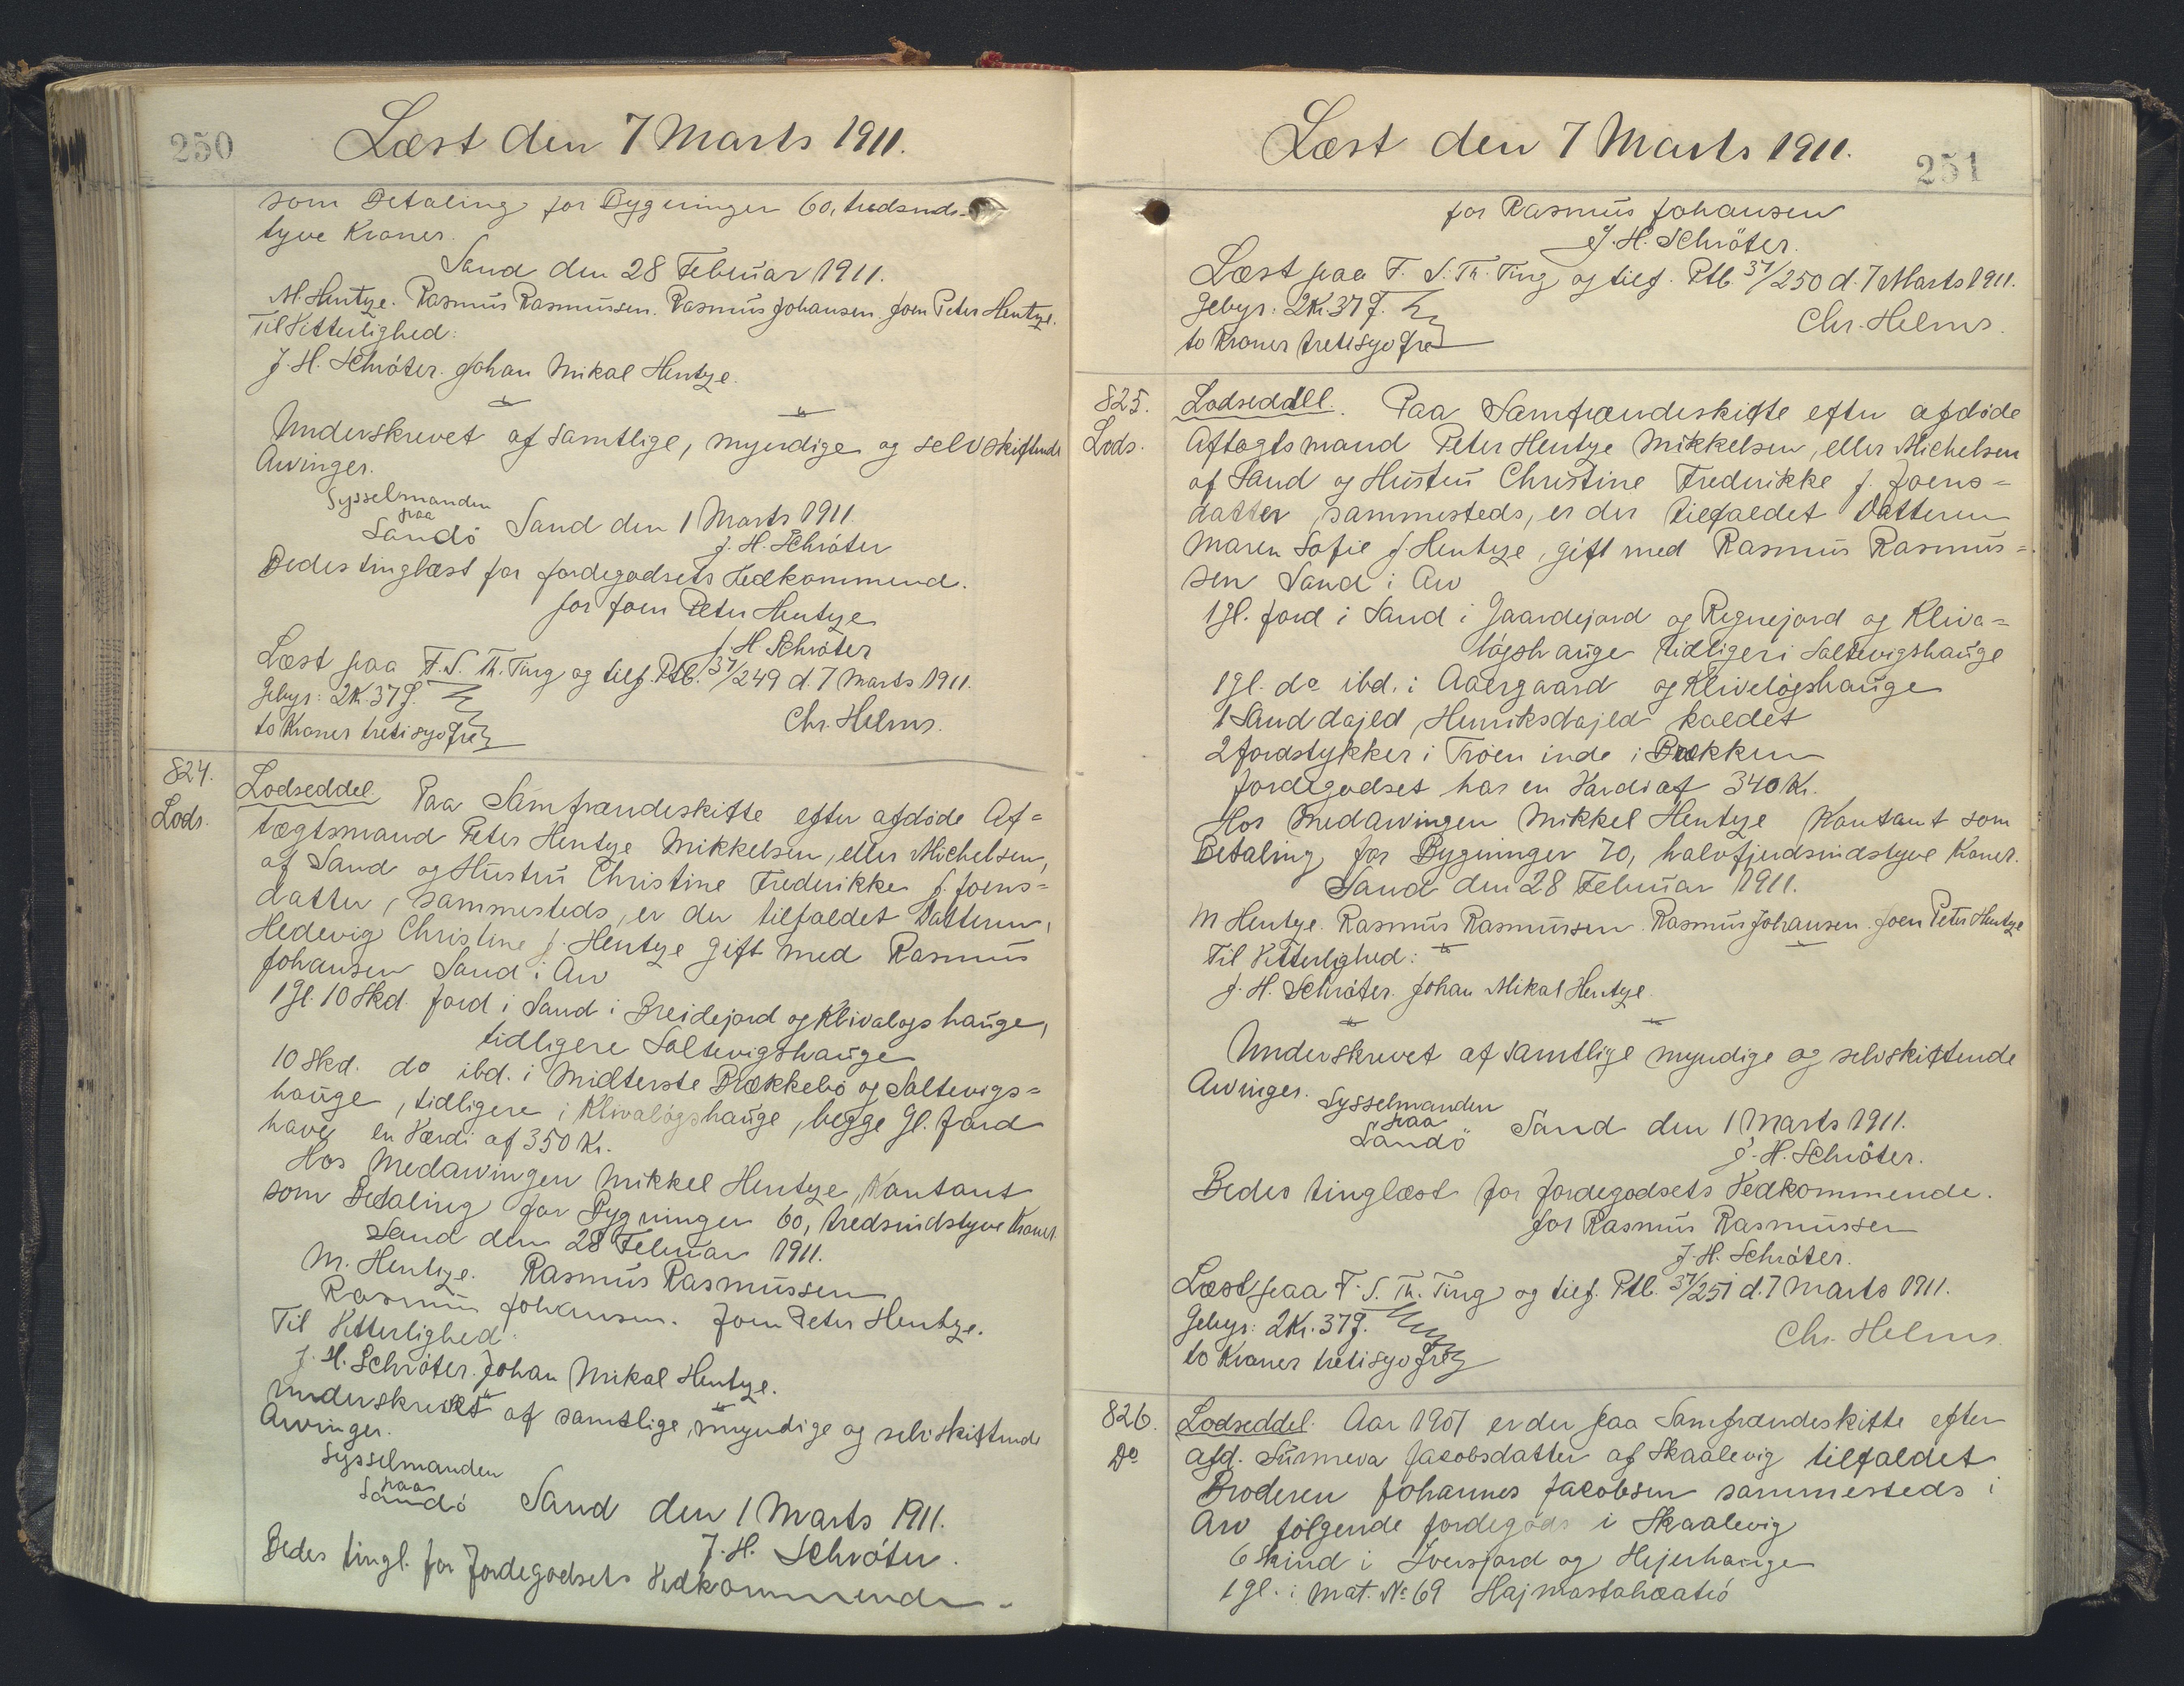 250
Læst den 7 Marts 1911.
som Betaling for Bygninger 60, tredsinds-
tyve Kroner.
Sand den 28 Februar 1911.
M. Hentze. Rasmus Rasmussen. Rasmus Johansen. Joen Peter Hentze.
Til Vitterlighed:
J. H. Schröter. Johan Mikal Hentze.
Underskrevet af samtlige, myndige og selvskiftende
Arvinger.
Sysselmanden
paa
Sandö Sand den 1 Marts 1911.
J. H. Schröter
Bedes tinglæst for Jordegodsets Vedkommend.
for Joen Peter Hentze
J. H. Schröter
Læst paa F. S. Th. Ting og tilf. Ptb. 37/249 d. 7 Marts 1911.
Gebyr: 2 Kr. 37 Ø.
to Kroner tretisyv Øre
Chr. Helms.
824.
Lods.
Lodseddel. Paa Samfrændeskifte efter afdøde Af=
tægtsmand Peter Hentze Mikkelsen, eller Michelsen,
af Sand og Hustru Christine Frederikke f. Joens=
datter, sammesteds, er der tilfaldet Datteren,
Hedevig Christine f. Hentze gift med Rasmus
Johansen Sand i Arv
1 Gl. 10 Skd. Jord i Sand i Breidejord og Klivaløgshauge,
tidligere Saltevigshauge
10 Skd. do ibd. i Midterste Brækkebø og Saltevigs=
hauge, tidligere i Klivaløgshauge, begge Gl. Jord
have en Værdi af 350 Kr.
Hos Medarvingen Mikkel Hentze, Kontant
som Betaling for Bygninger 60, tredsindstyve Kroner
Sand den 28 Februar 1911.
M. Hentze. Rasmus Rasmussen
Rasmus Johansen. Joen Peter Hentze.
Til Vitterlighed:
J. H. Schröter. Johan Mikal Hentze.
Underskrevet af samtlige, myndige og selvskiftende
Arvinger.
Sysselmanden
paa
Sandö Sand den 1 Marts 1911.
J. H. Schröter.
Bedes tingl. for Jordegodsets Vedkommende.
251
Læst den 7 Marts 1911.
for Rasmus Johansen
J. H. Schröter.
Læst paa F. S. Th. Ting og tilf. Ptb. 37/250 d. 7 Marts 1911.
Gebyr: 2 Kr. 37 Ø.
to Kroner tretisyv Øre
Chr. Helms.
825.
Lods.
Lodseddel. Paa Samfrændeskifte efter afdøde
Aftægtsmand Peter Hentze Mikkelsen, eller Michelsen
af Sand og Hustru Christine Frederikke f. Joens=
datter, sammesteds, er der tilfaldet Datteren
Maren Sofie f. Hentze, gift med Rasmus Rasmus=
sen Sand i Arv
1 Gl. Jord i Sand i Gaardejord og Regnejord og Kliva=
løgshauge tidligere i Saltevigshauge
1 Gl. do ibd. i Aaergaard og Kliveløgshauge
1 Sanddajld, Henriksdajld kaldet
2 Jordstykker i Trøen inde i Brækken
Jordegodset har en Værdi af 340 Kr.
Hos Medarvingen Mikkel Hentze Kontant som
Betaling for Bygninger 70, halvfjerdsindstyve Kroner.
Sand den 28 Februar 1911.
M Hentze. Rasmus Rasmussen. Rasmus Johansen. Joen Peter Hentze
Til Vitterlighed:
J. H. Schröter. Johan Mikal Hentze.
Underskrevet af samtlige myndige og selvskiftende
Arvinger.
Sysselmanden
paa
Sandö Sand den 1 Marts 1911.
J. H. Schröter.
Bedes tinglæst for Jordegodsets Vedkommende.
for Rasmus Rasmussen
J. H. Schröter.
Læst paa F. S. Th. Ting og tilf. Ptb. 37/251 d. 7 Marts 1911.
Gebyr: 2 Kr. 37 Ø.
to Kroner tretisyv Øre
Chr. Helms
826.
Do
Lodseddel. Aar 1901 er der paa Samfrændeskifte efter
afd. Sunneva Jacobsdatter af Skaalevig tilfaldet
Broderen Johannes Jacobsen sammesteds i
Arv følgende Jordegods i Skaalevig
6 Skind i Iversjord og Hejerhauge
1 Gl. i Mat. No 69